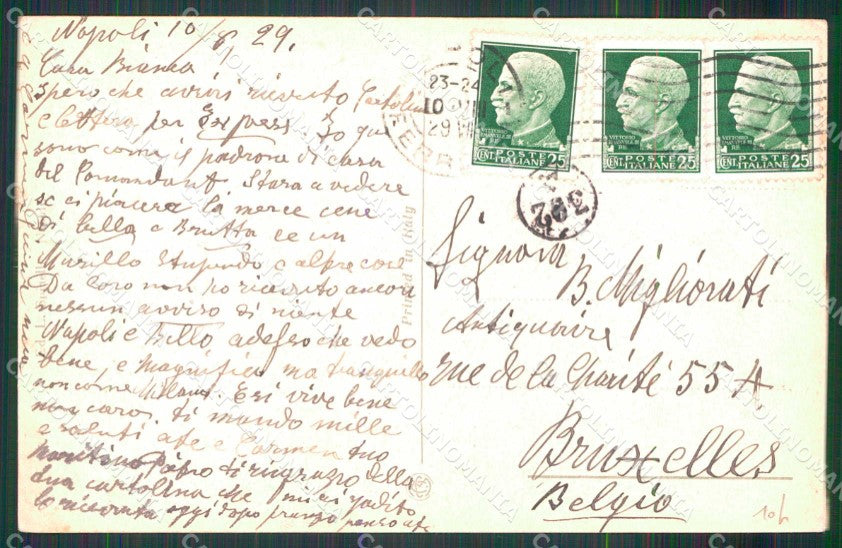 Napoli 10/8, 29.
Cara Bianca
Spero che avrai ricevuto Cartolina
e lettera per Express Io qui
sono come il padrone di casa
del Comandant Stara a vedere
se ci piacera la merce cene
di bella e Brutta ce un
Murillo Stupendo e altre cose
Da loro non ho ricevuto ancora
nessun avviso di niente
Napoli e bello adesso che vedo
bene, e magnifico ma tranquillo
non come Milano. E si vive bene
non caro. ti mando mille
e saluti a te e Carmen tuo
ringrazio della
tua cartolina che
ricevuta oggi dopo pranzo
Printed in Italy
23-24
10 VIII
29 VII
FERR
VITTORIO EMANUELE III RE
POSTE ITALIANE
CENT. 25
VITTORIO EMANUELE III RE
POSTE ITALIANE
CENT. 25
VITTORIO EMANUELE III RE
POSTE ITALIANE
CENT. 25
392
Signora
B. Migliorati
Antiquaire
rue de la Charité 55 A
Bruxelles
Belgio
CARTOLINOMANIA